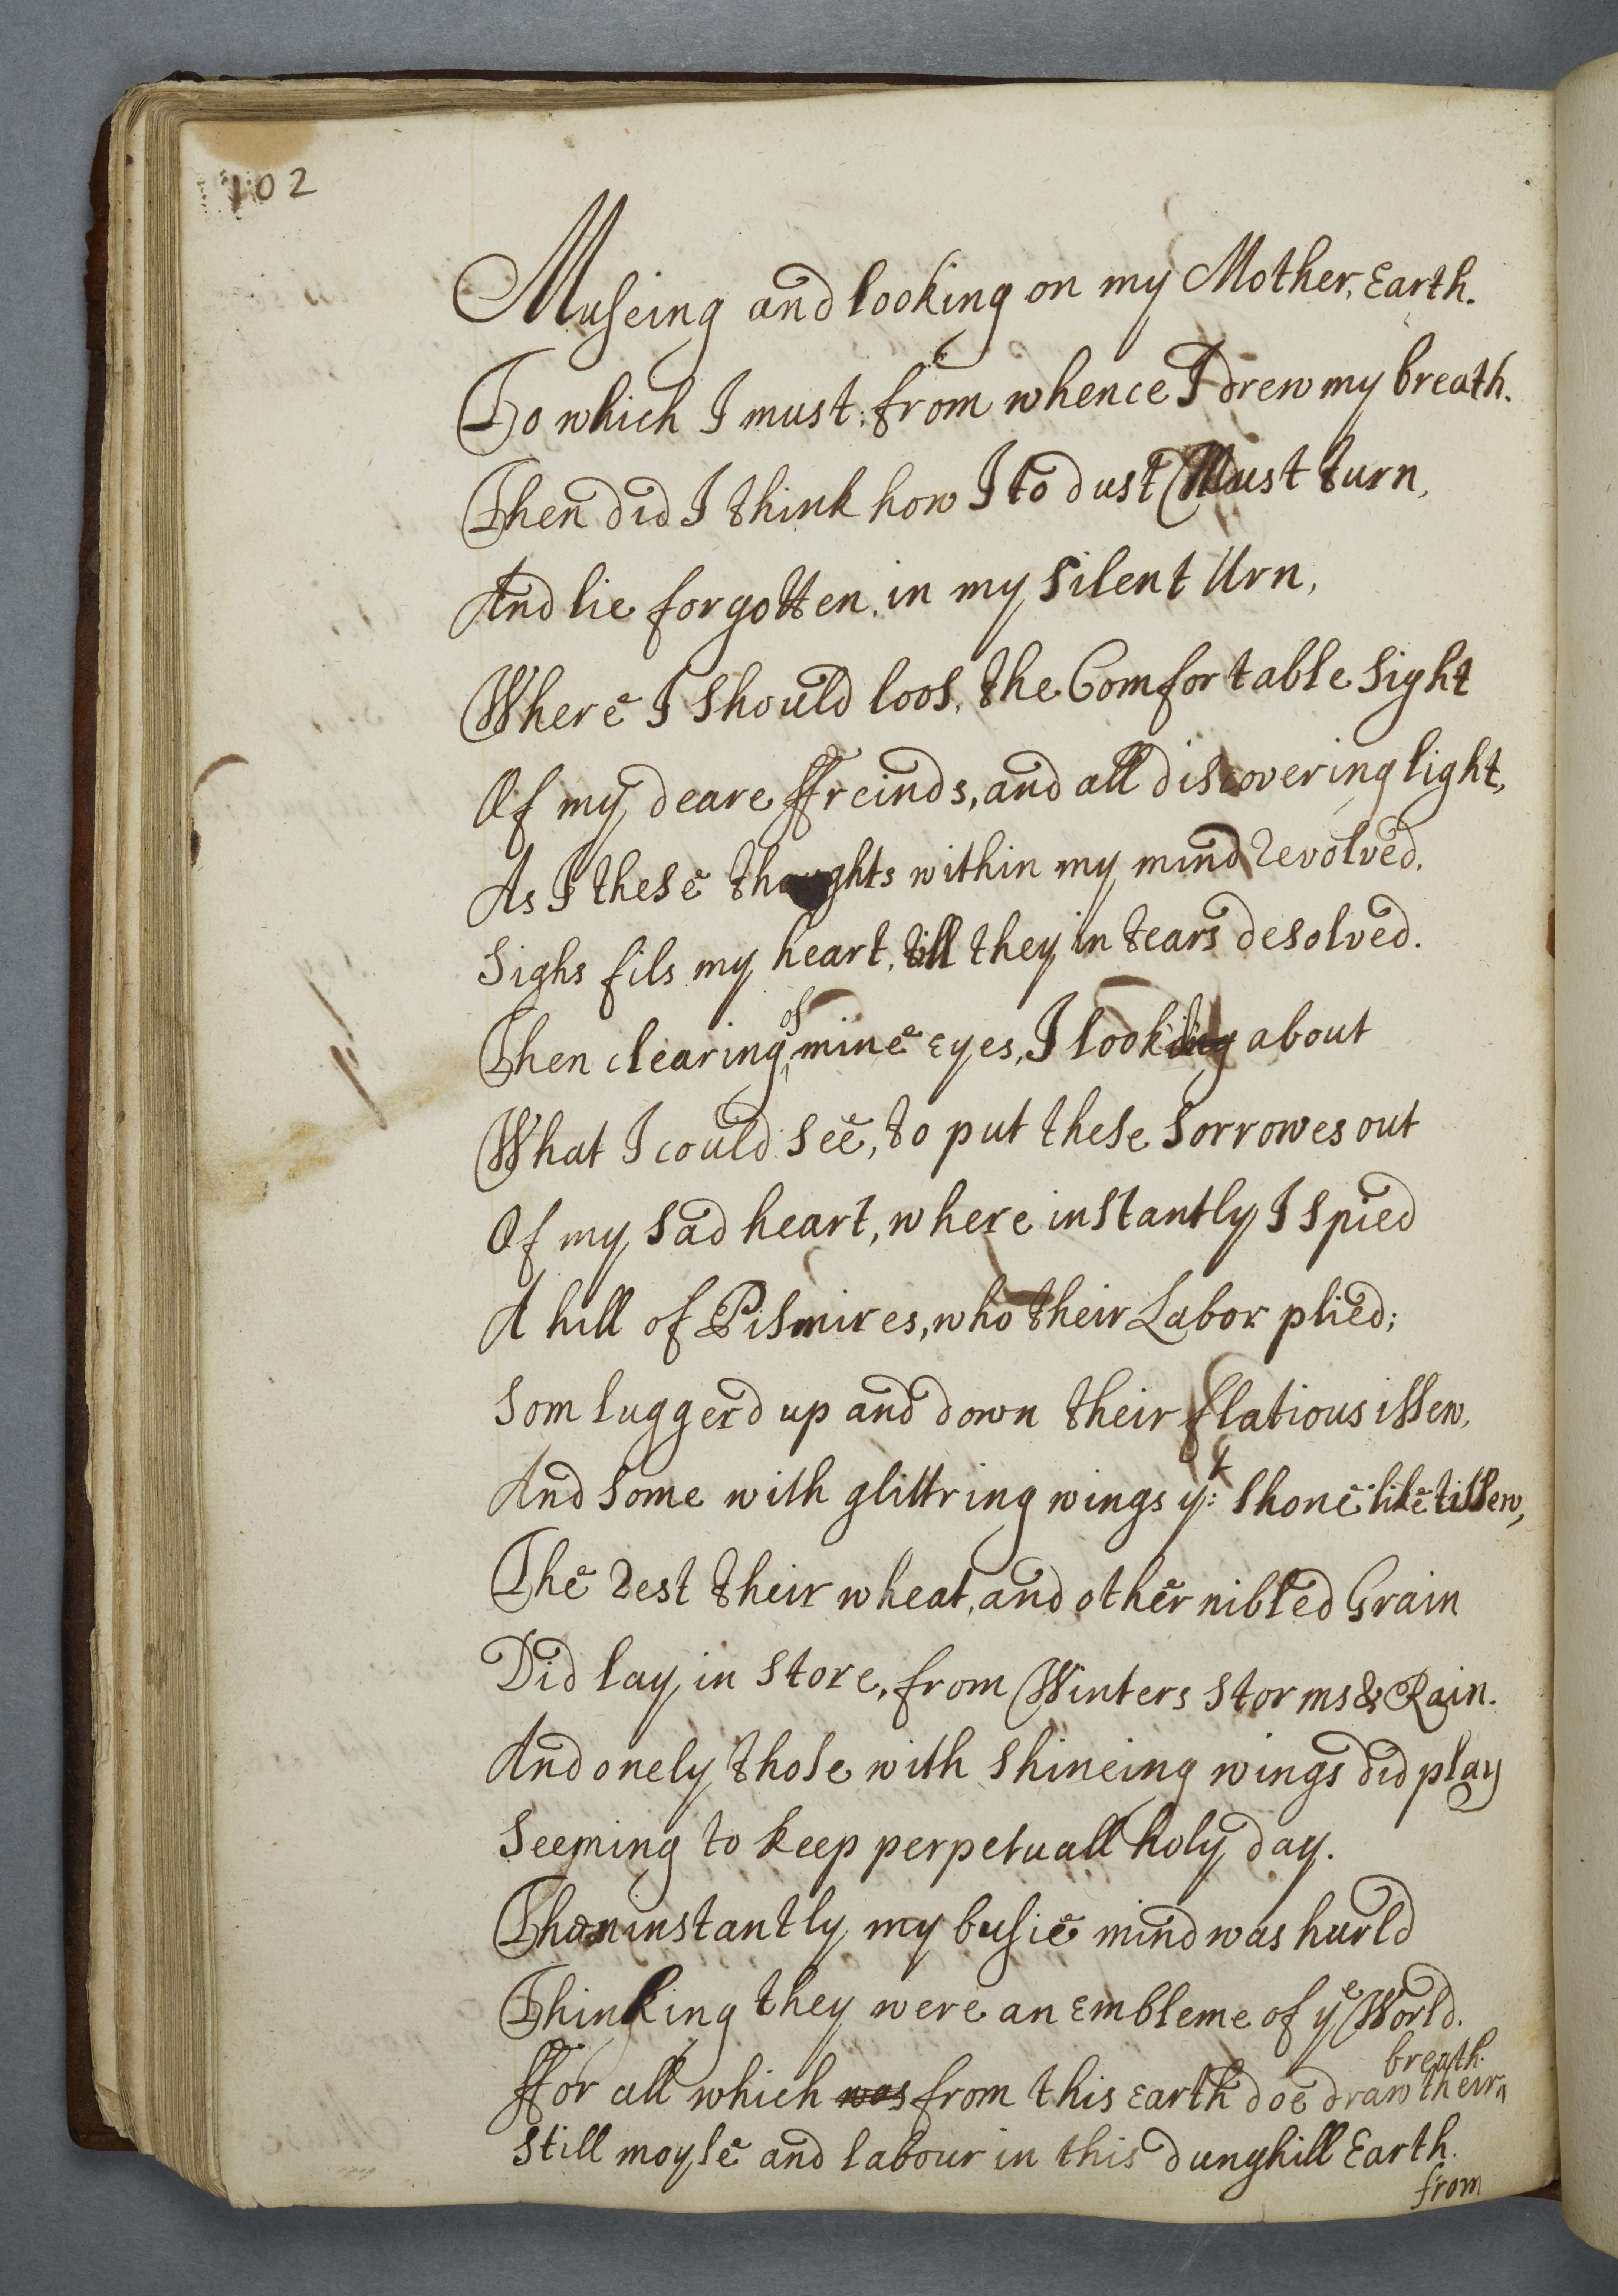 102
Museing and looking on my Mother, Earth.
To which I must: from whence I drew my breath.
Then did I think how I to dust Must turn,
And lie forgotten, in my silent Urn,
Where I should loos, the Comfortable sight
Of my deare ffreinds, and all discovering light,
As I these thoughts within my mind revolved,
Sighs fils my heart, till they in tears desolved.
Then clearing of mine eyes, I looking about
What I could see, to put these sorrowes out
Of my sad heart, where instantly I spied
A hill of Pismires, who their Labor plied;
Som luggerd up and down their flatious issew,
And some with glittring wings yt: shone like tissew,
The rest their wheat, and other nibled Grain
Did lay in store, from Winters storms & Rain.
And onely those with shineing wings did play
Seeming to keep perpetuall holy day.
Then instantly my busie mind was hurld
Thinking they were an embleme of ye World.
ffor all which was from this earth doe draw their breath.
Still moyle and labour in this dunghill Earth.
from